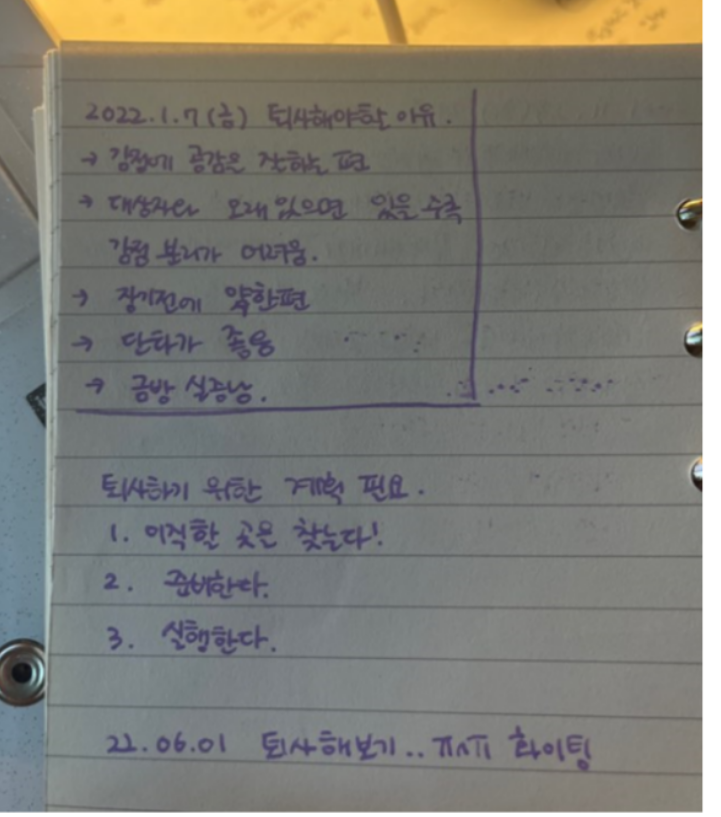 2022.1.7(금) 퇴사해야할 이유.
→ 감정에 공감은 잘하는 편
→ 대상자와 오래 있으면 있을 수록
감정 분리가 어려움.
→ 장기전에 약한편
→ 단타가 좋음
→ 금방 실증남.
퇴사하기 위한 계획 필요.
1. 이직할 곳을 찾는다!
2. 준비한다.
3. 실행한다.
22.06.01 퇴사해보기.. ㅠㅅㅠ 화이팅